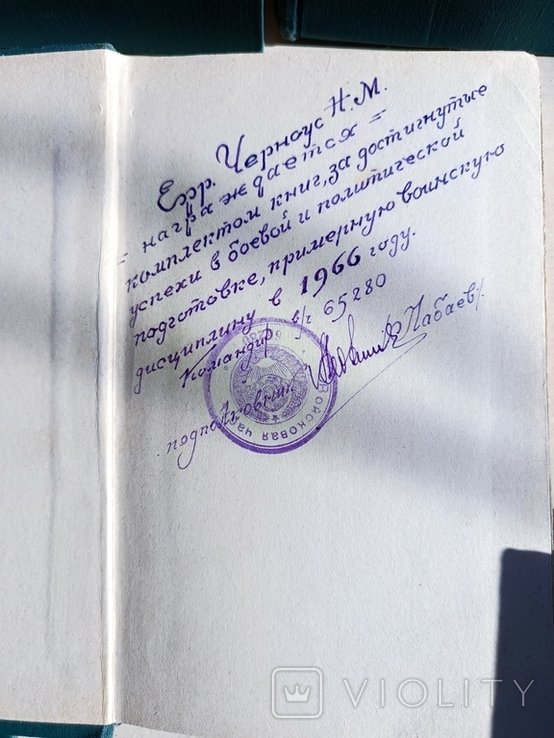 Ефр. Черноус Н.М.
= награждается =
комплектом книг, за достигнутые
успехи в боевой и политической
подготовке, примерную воинскую
дисциплину в 1966 году.
Командир в/ч 65280
подполковник /Лабаев/.
Войсковая час
VIOLITY